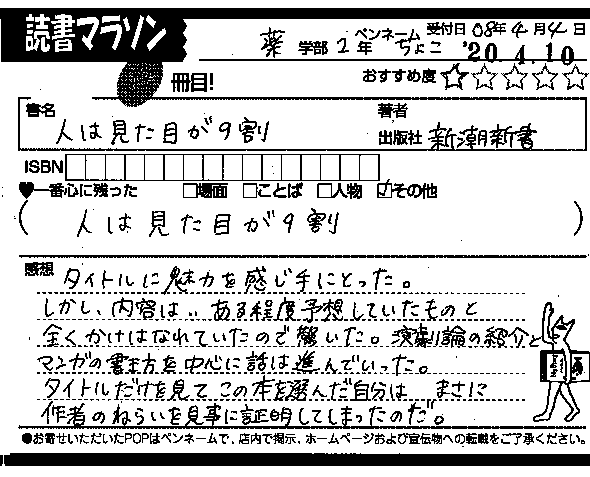 読書マラソン
薬 学部 2 年
ペンネーム ちょこ
受付日 08年 4月 4日
'20. 4. 10
冊目!
おすすめ度 ☆☆☆☆☆
書名 人は見た目が9割
著者
出版社 新潮新書
ISBN
♥一番心に残った □場面 □ことば □人物 ☑その他
( 人は見た目が9割 )
感想 タイトルに魅力を感じ手にとった。
しかし、内容は‥ある程度予想していたものと
全くかけはなれていたので驚いた。演劇論の紹介と
マンガの書き方を中心に話は進んでいった。
タイトルだけを見てこの本を選んだ自分は まさに
作者のねらいを見事に証明してしまったのだ。
●お寄せいただいたPOPはペンネームで、店内で掲示、ホームページおよび宣伝物への転載をご了承ください。